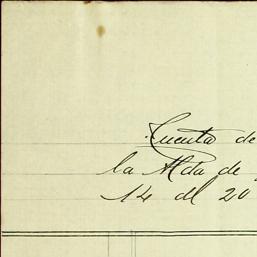 Cuenta de
la Hda de
14 al 20